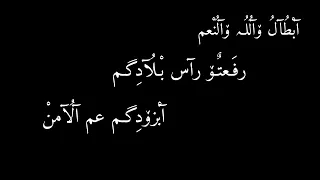 آبْطُآلُ وۡآلُلُہ وۡآلُنْعم
رفَعتٌوۡ رآس بْلُآدِگم
آبْزوۡدِگم عم آلُآمنْ